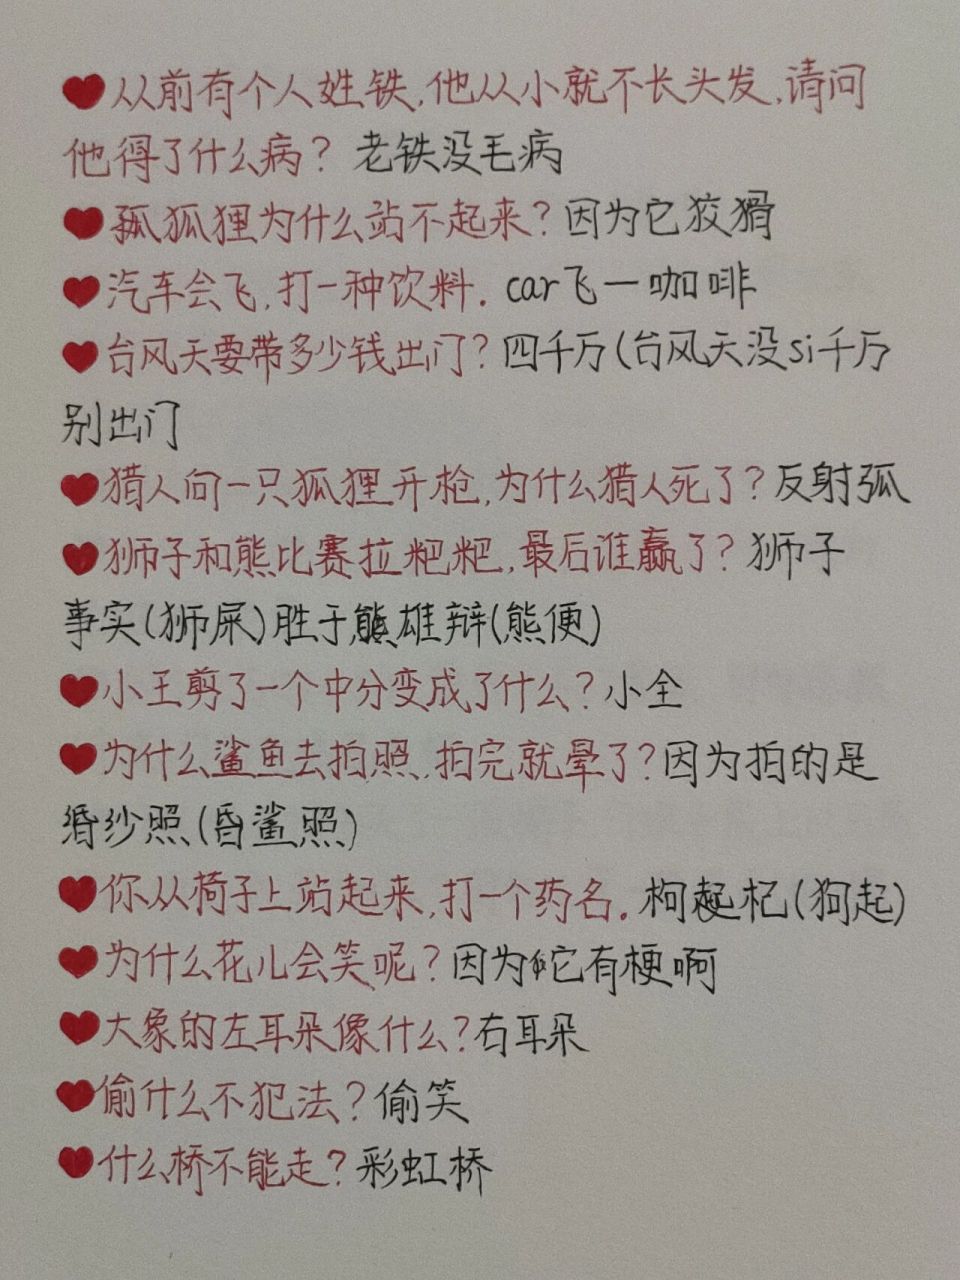 ❤从前有个人姓铁,他从小就不长头发,请问
他得了什么病? 老铁没毛病
❤狐狐狸为什么站不起来?因为它狡猾
❤汽车会飞,打一种饮料. car飞一咖啡
❤台风天要带多少钱出门?四千万(台风天没si千万
别出门
❤猎人向一只狐狸开枪,为什么猎人死了?反射弧
❤狮子和熊比赛拉粑粑,最后谁赢了? 狮子
事实(狮屎)胜于熊雄辩(熊便)
❤小王剪了一个中分变成了什么?小全
❤为什么鲨鱼去拍照,拍完就晕了?因为拍的是
婚纱照(昏鲨照)
❤你从椅子上站起来,打一个药名. 枸起杞(狗起)
❤为什么花儿会笑呢?因为它有梗啊
❤大象的左耳朵像什么?右耳朵
❤偷什么不犯法?偷笑
❤什么桥不能走?彩虹桥